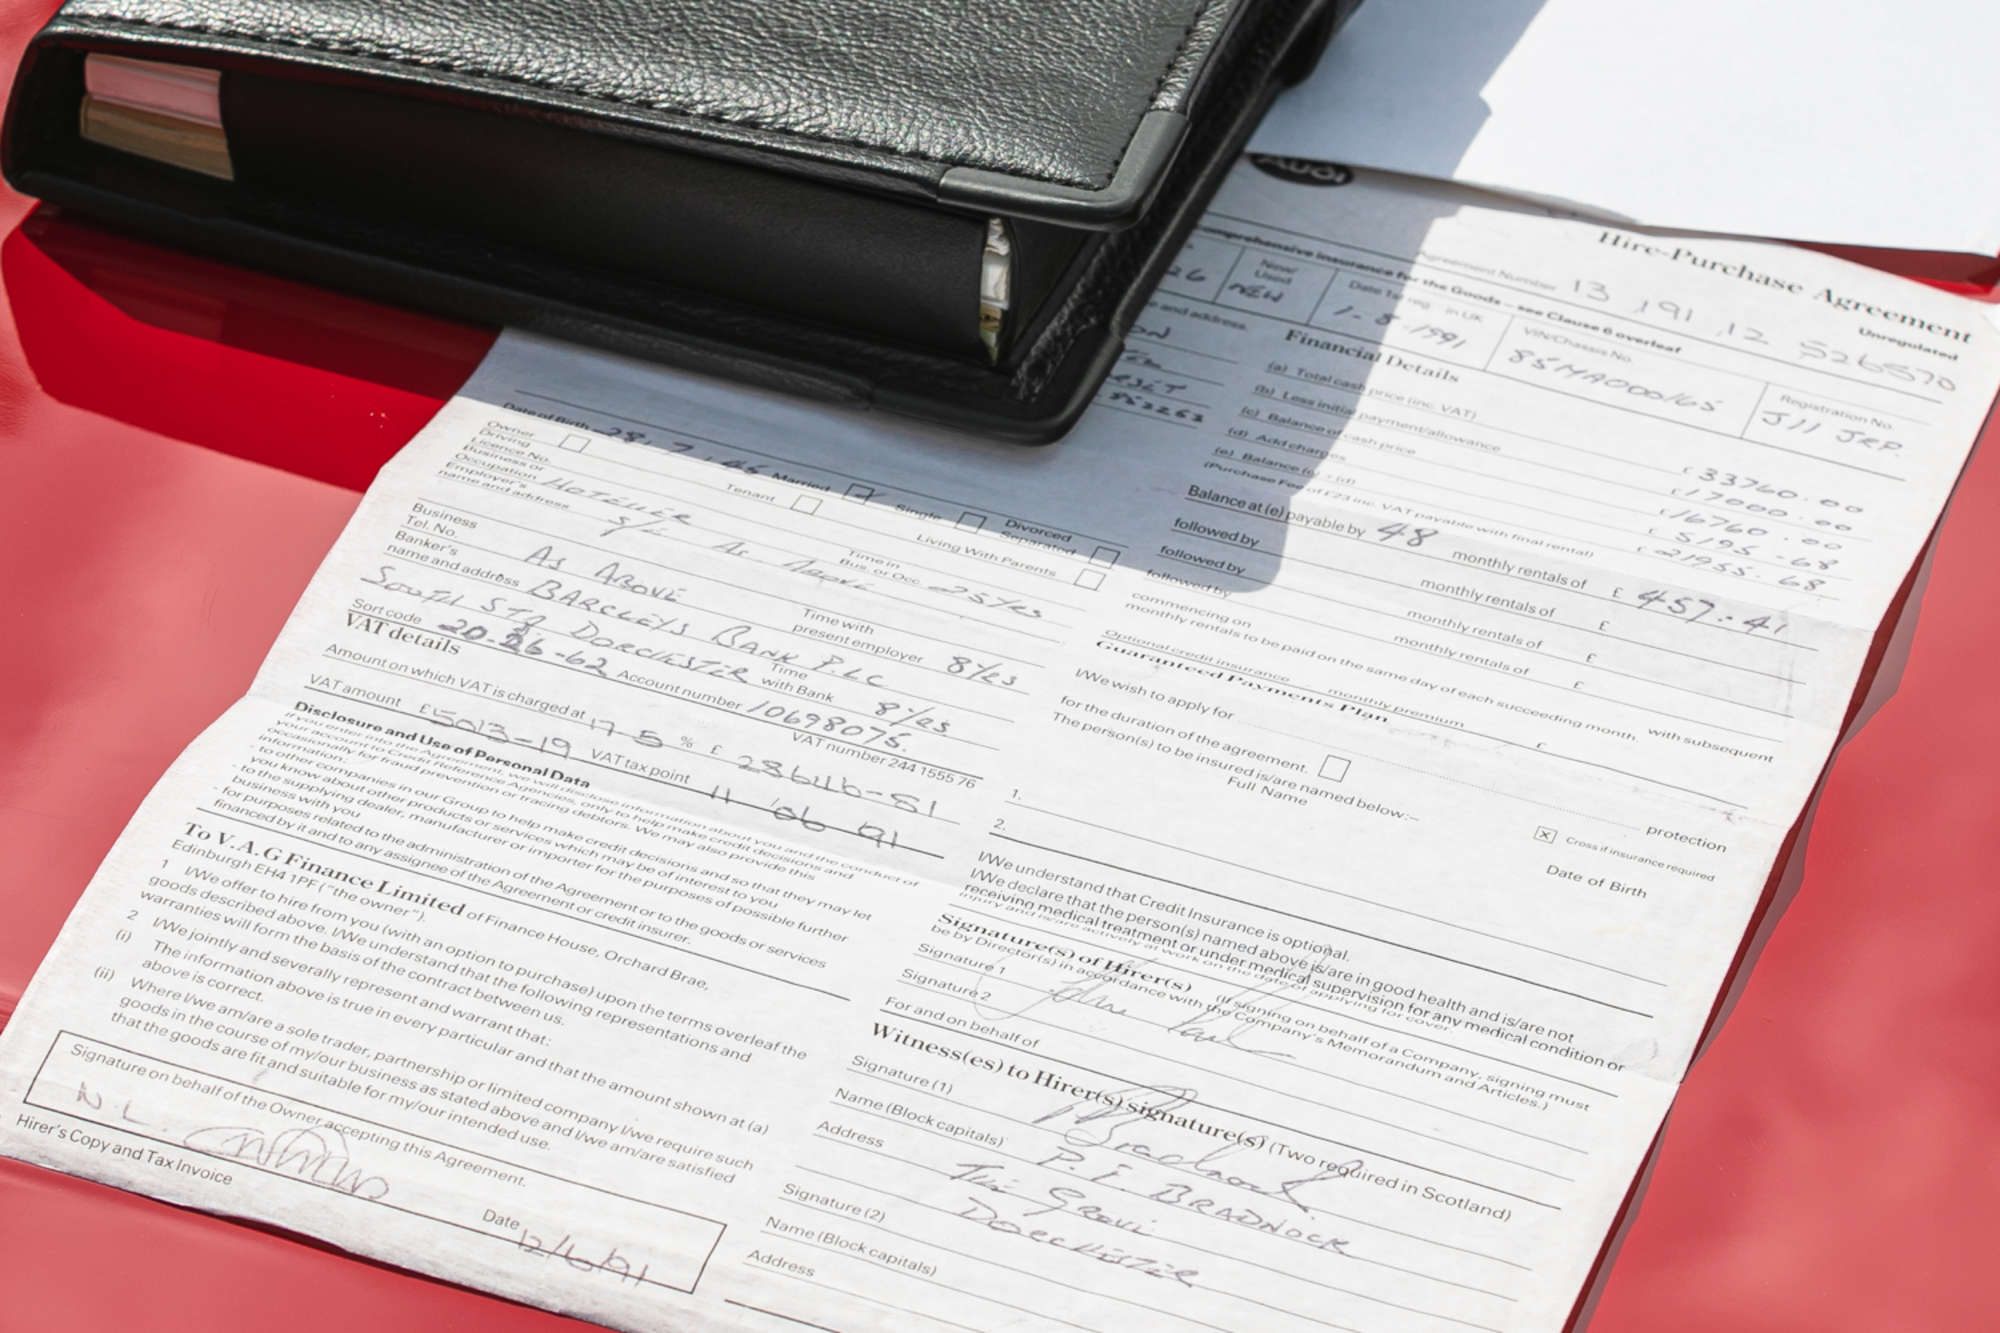 AUDI
Hire-Purchase Agreement
Unregulated
Agreement Number 13 191 12 526570
omprehensive insurance for the Goods – see Clause 6 overleaf
26
New/
Used
NEW
Date 1st reg in UK
1-8-1991
VIN/Chassis No.
85MA000165
Registration No.
J11 JRP.
e and address.
ON
Financial Details
(a) Total cash price (inc. VAT) £ 33760.00
(b) Less initial payment/allowance £ 17000.00
(c) Balance of cash price £ 16760.00
(d) Add charges £ 5195-68
(e) Balance (c) + (d) £ 21955.68
(Purchase Fee of £23 inc. VAT payable with final rental)
Balance at (e) payable by 48 monthly rentals of £ 457.41
followed by monthly rentals of £
followed by monthly rentals of £
followed by monthly rentals of £
commencing on with subsequent
monthly rentals to be paid on the same day of each succeeding month.
Optional credit insurance monthly premium £
Guaranteed Payments Plan
I/We wish to apply for protection
for the duration of the agreement. Cross if insurance required
The person(s) to be insured is/are named below:–
Full Name Date of Birth
1.
2.
I/We understand that Credit Insurance is optional.
I/We declare that the person(s) named above is/are in good health and is/are not
receiving medical treatment or under medical supervision for any medical condition or
injury and is/are actively at work on the date of applying for cover.
Signature(s) of Hirer(s) (If signing on behalf of a Company, signing must
be by Director(s) in accordance with the Company's Memorandum and Articles.)
Signature 1
Signature 2
For and on behalf of
Witness(es) to Hirer(s) signature(s) (Two required in Scotland)
Signature (1)
Name (Block capitals) P. I. BRADNOCK
Address The Grove
DORCHESTER
Signature (2)
Name (Block capitals)
Address
Date of Birth 28.7.46 Married Single Divorced
Separated
Owner Tenant Living With Parents
Driving
Licence No.
Business or
Occupation HOTELIER Time in
Bus. or Occ. 25 yrs
Employer's
name and address S/E As Above
Business
Tel. No. As ABOVE Time with
present employer 8 yrs
Banker's
name and address BARCLEYS BANK P.L.C
SOUTH STR DORCHESTER Time
with Bank 8 yrs
Sort code 20-26-62 Account number 10698075.
VAT details VAT number 244 1555 76
Amount on which VAT is charged at 17.5 % £ 28646-81
VAT amount £ 5013-19 VAT tax point 11 06 91
Disclosure and Use of Personal Data
If you enter into the Agreement, we will disclose information about you and the conduct of
your account to Credit Reference Agencies, only to help make credit decisions and
occasionally for fraud prevention or tracing debtors. We may also provide this
information:
- to other companies in our Group to help make credit decisions and so that they may let
you know about other products or services which may be of interest to you
- to the supplying dealer, manufacturer or importer for the purposes of possible further
business with you
- for purposes related to the administration of the Agreement or to the goods or services
financed by it and to any assignee of the Agreement or credit insurer.
To V.A.G Finance Limited of Finance House, Orchard Brae,
Edinburgh EH4 1PF ("the owner").
1 I/We offer to hire from you (with an option to purchase) upon the terms overleaf the
goods described above. I/We understand that the following representations and
warranties will form the basis of the contract between us.
2 I/We jointly and severally represent and warrant that:
(i) The information above is true in every particular and that the amount shown at (a)
above is correct.
(ii) Where I/we am/are a sole trader, partnership or limited company I/we require such
goods in the course of my/our business as stated above and I/we am/are satisfied
that the goods are fit and suitable for my/our intended use.
Signature on behalf of the Owner accepting this Agreement.
N.L.
Date 12/6/91
Hirer's Copy and Tax Invoice